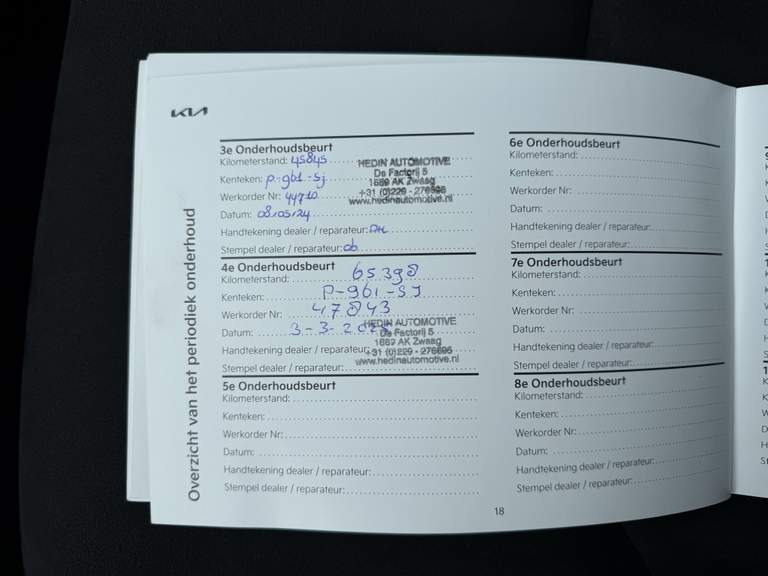 KIA
Overzicht van het periodiek onderhoud
3e Onderhoudsbeurt
Kilometerstand: 45845
Kenteken: P-961-SJ
Werkorder Nr: 44710
Datum: 08.05.24
Handtekening dealer / reparateur:
Stempel dealer / reparateur:
HEDIN AUTOMOTIVE
De Factorij 5
1689 AK Zwaag
+31 (0)229 - 276695
www.hedinautomotive.nl
4e Onderhoudsbeurt
Kilometerstand: 65398
Kenteken: P-961-SJ
Werkorder Nr: 47843
Datum: 3-3-
Handtekening dealer / reparateur:
Stempel dealer / reparateur:
HEDIN AUTOMOTIVE
De Factorij 5
1689 AK Zwaag
+31 (0)229 - 276695
www.hedinautomotive.nl
5e Onderhoudsbeurt
Kilometerstand:
Kenteken:
Werkorder Nr:
Datum:
Handtekening dealer / reparateur:
Stempel dealer / reparateur:
6e Onderhoudsbeurt
Kilometerstand:
Kenteken:
Werkorder Nr:
Datum:
Handtekening dealer / reparateur:
Stempel dealer / reparateur:
7e Onderhoudsbeurt
Kilometerstand:
Kenteken:
Werkorder Nr:
Datum:
Handtekening dealer / reparateur:
Stempel dealer / reparateur:
8e Onderhoudsbeurt
Kilometerstand:
Kenteken:
Werkorder Nr:
Datum:
Handtekening dealer / reparateur:
Stempel dealer / reparateur:
18